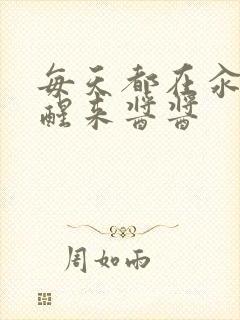 每天都在汆
醒来酱酱
周如雨